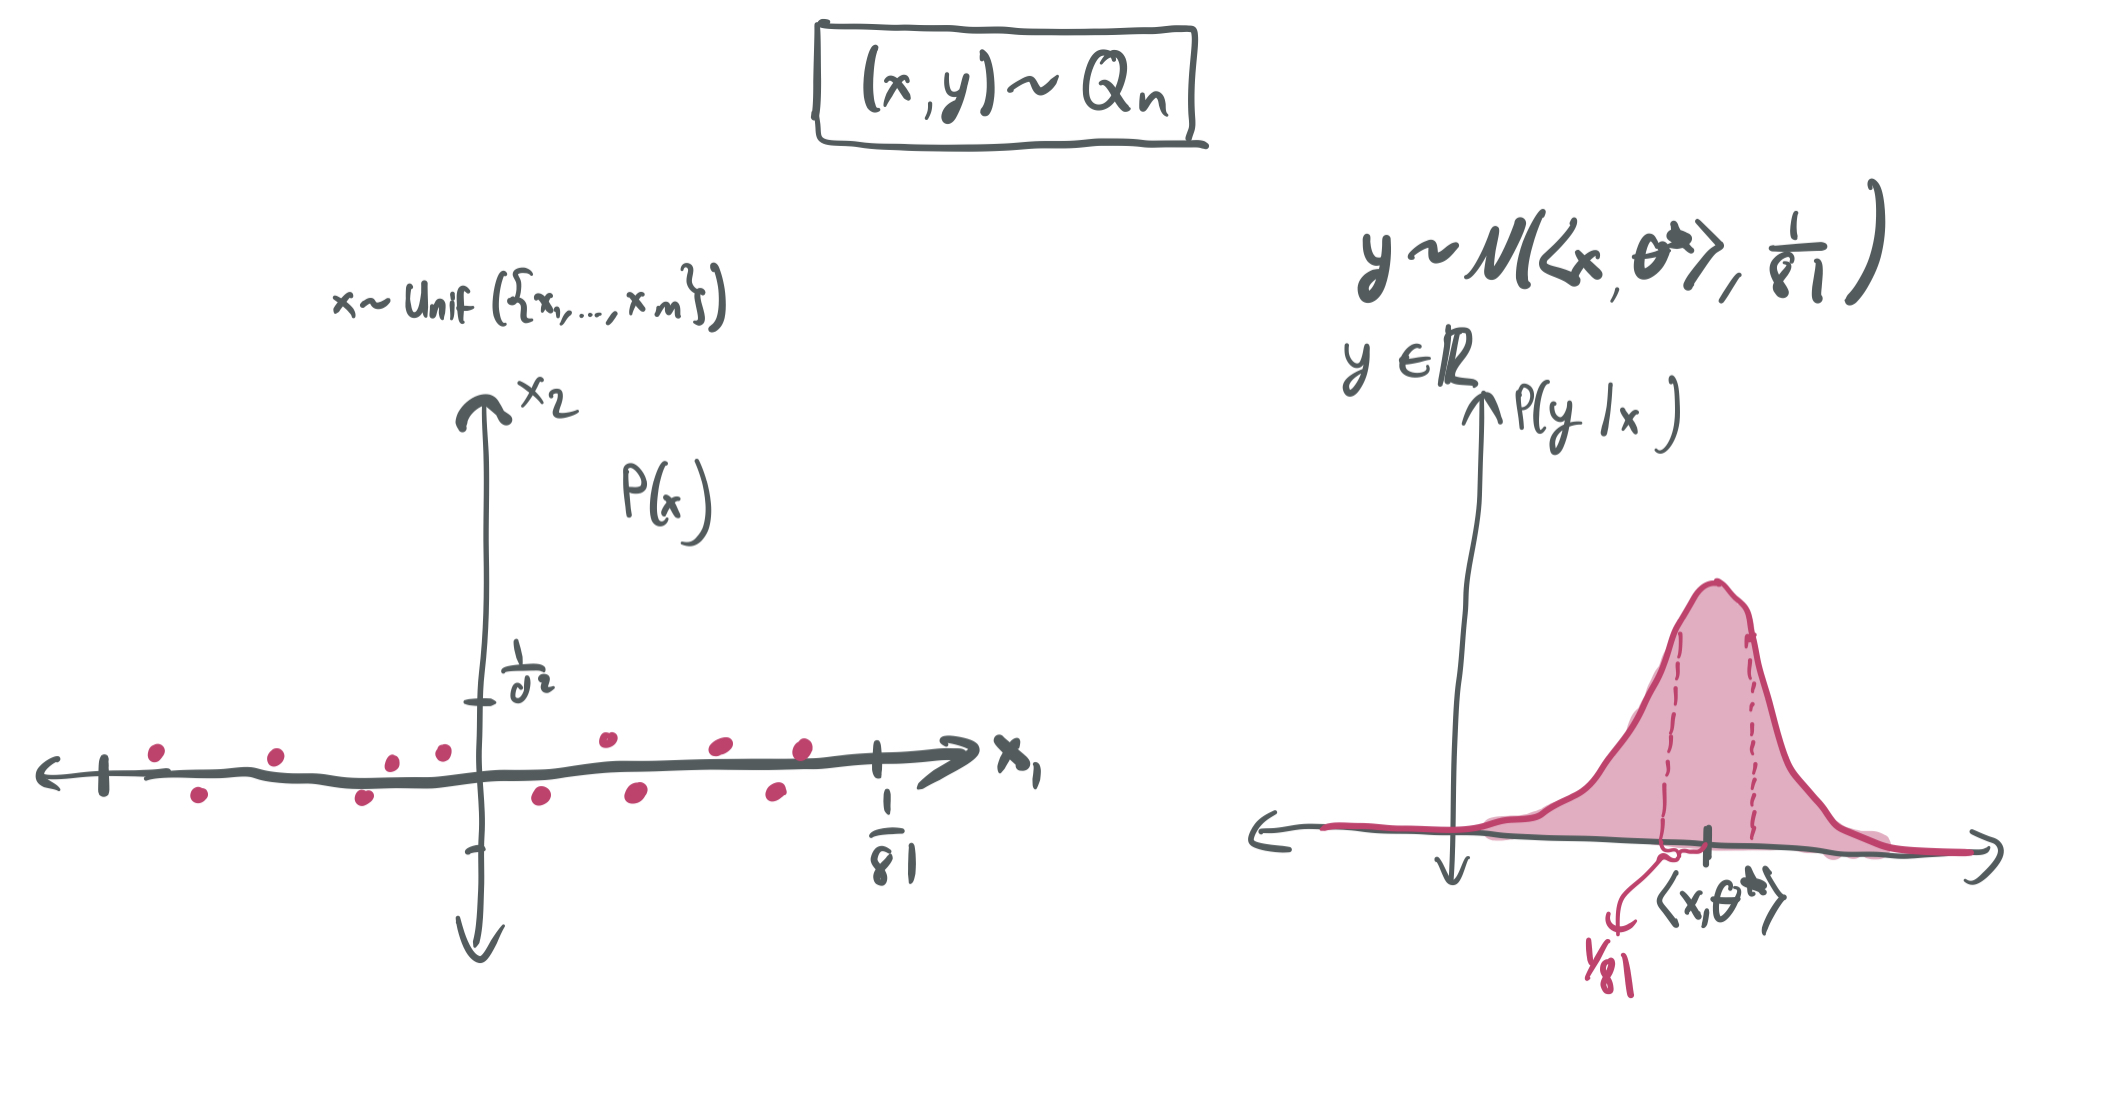 (x,y) ~ Qn
x ~ Unif ({x₁,...,xₘ})
x₂
P(x)
1/d²
x₁
1/81
y ~ N(⟨x,θ*⟩, 1/81)
y ∈ ℝ
P(y|x)
⟨x,θ*⟩
1/81